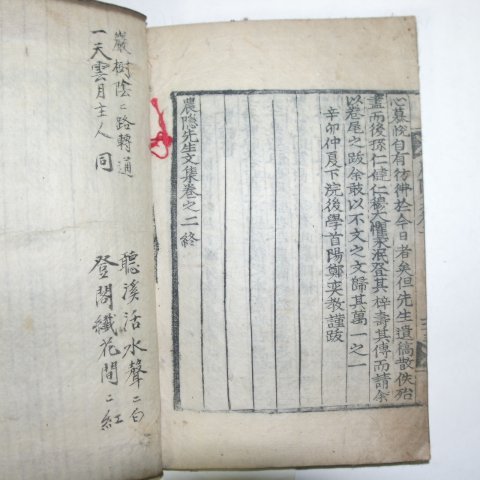 心慕悅自有彷彿於今日者矣但先生遺稿散佚殆
盡而後孫仁健仁穆大懼泯登其梓壽其傳而請余
以卷尾之跋余敢以不文之文歸其萬一之一
辛卯仲夏下浣後學首陽鄭奕教謹跋
農隱先生文集卷之二終
巖樹陰二路轉通
一天雲月主人同
聽溪活水聲二白
登閣纖花間二紅